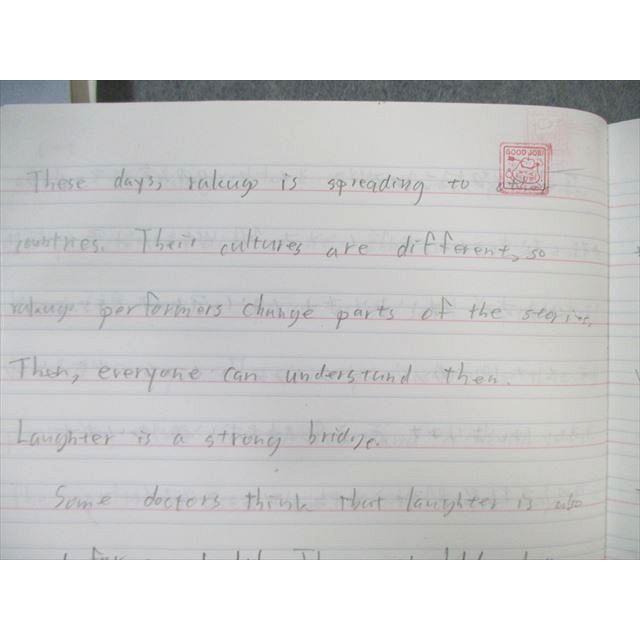 GOOD JOB!
These days, rakugo is spreading to other
countries. Their cultures are different, so
rakugo performers change parts of the stories.
Then, everyone can understand then.
Laughter is a strong bridge.
Some doctors think that laughter is also